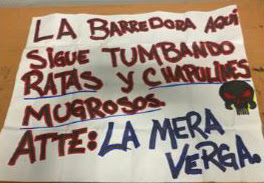 LA BARREDORA AQUÍ
SIGUE TUMBANDO
RATAS Y CHAPULINES
MUGROSOS.
ATTE: LA MERA
VERGA.